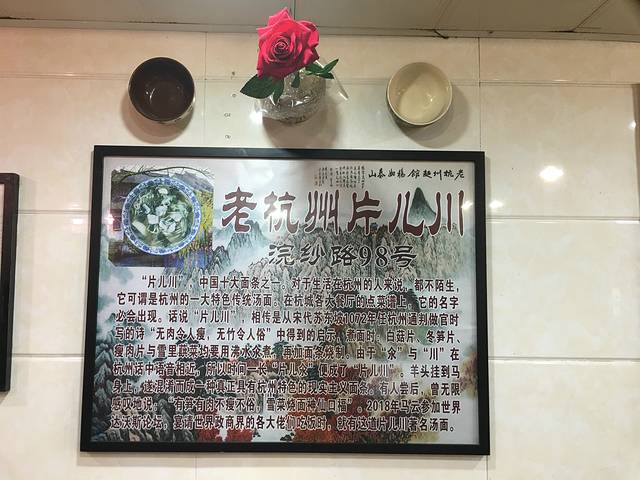 老杭州面馆
老杭州片儿川
浣纱路98号
“片儿川”,中国十大面条之一,对于生活在杭州的人来说,都不陌生,
它可谓是杭州的一大特色传统汤面。在杭城各大餐厅的点菜谱上,它的名字
必会出现。话说“片儿川”,相传是从宋代苏东坡1072年任杭州通判做官时
写的诗“无肉令人瘦,无竹令人俗”中得到的启示,煮面时,白菇片、冬笋片、
瘦肉片与雪里蕻菜均要用沸水氽煮,再加面条烧制。由于“氽”与“川”在
杭州话中语音相近,所以时间一长“片儿氽”便成了“片儿川”。羊头挂到马
身上,遂混淆而成一种真正具有杭州特色的现实主义面条。有人尝后,曾无限
感叹地说:“有笋有肉不瘦不俗,雪菜烩面神仙口福”。2018年马云参加世界
达沃斯论坛,宴请世界政商界的各大佬们吃饭时,就有这道片儿川著名汤面。